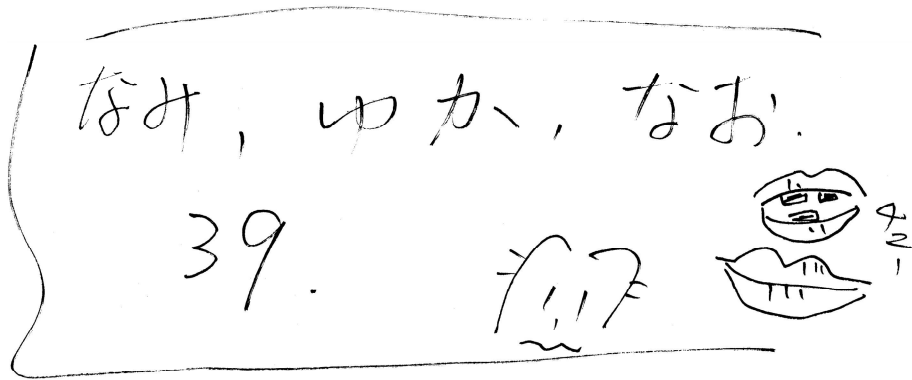 なみ, ゆか, なお.
39.